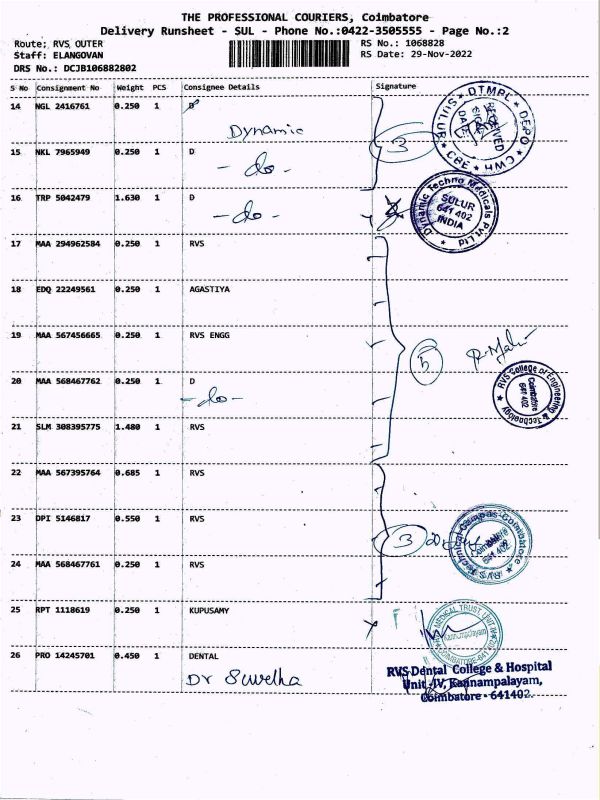 THE PROFESSIONAL COURIERS, Coimbatore
Delivery Runsheet - SUL - Phone No.:0422-3505555 - Page No.:2
Route: RVS OUTER
Staff: ELANGOVAN
DRS No.: DCJB106882802
RS No.: 1068828
RS Date: 29-Nov-2022
S No Consignment No Weight PCS Consignee Details Signature
14 NGL 2416761 0.250 1 D
Dynamic
3
DTMPL * DEPO * HWC * CBE * SULUR
RECEIVED
DATE
15 NKL 7965949 0.250 1 D
- do -
16 TRP 5042479 1.630 1 D
- do -
Dynamic Techno Medicals Pvt Ltd
SULUR
641 402
INDIA
17 MAA 294962584 0.250 1 RVS
18 EDQ 22249561 0.250 1 AGASTIYA
19 MAA 567456665 0.250 1 RVS ENGG
5
20 MAA 568467762 0.250 1 D
- do -
RVS College of Engineering & Technology
Coimbatore
641 402
21 SLM 308395775 1.480 1 RVS
22 MAA 567395764 0.685 1 RVS
23 DPI 5146817 0.550 1 RVS
3
RVS Technical Campus-Coimbatore
Coimbatore
641 402
24 MAA 568467761 0.250 1 RVS
25 RPT 1118619 0.250 1 KUPUSAMY
MEDICAL TRUST UNIT
Kannampalayam
COIMBATORE-641
26 PRO 14245701 0.450 1 DENTAL
Dr Suvetha
RVS Dental College & Hospital
Unit -IV, Kannampalayam,
Coimbatore - 641402.